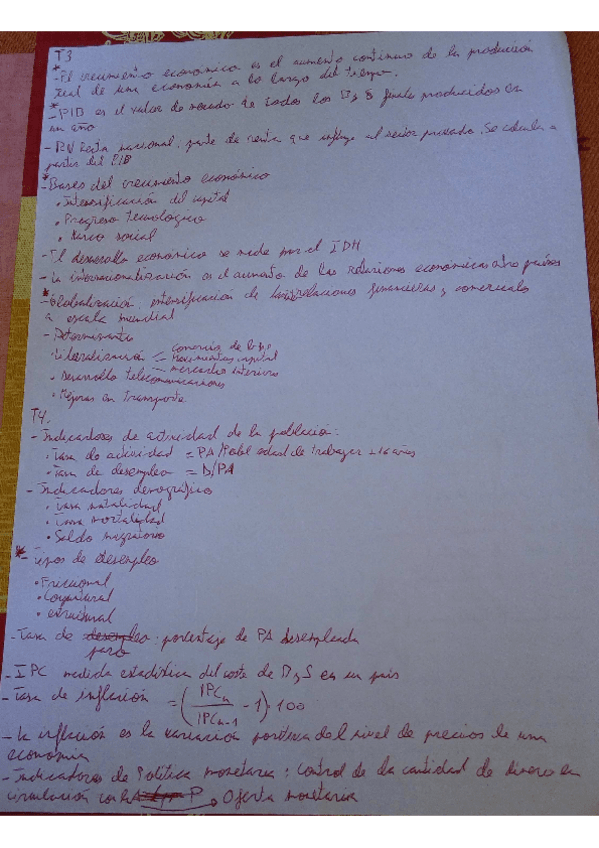 T3
* -El crecimiento económico es el aumento continuo de la producción
real de una economía a lo largo del tiempo.
* -PIB es el valor de mercado de todos los B y S finales producidos en
un año
-RN Renta nacional, parte de renta que influye al sector privado. Se calcula a
partir del PIB
* -Bases del crecimiento económico
• Intensificación del capital
• Progreso tecnológico
• Marco social
-El desarrollo económico se mide por el IDH
-La internacionalización es el aumento de las relaciones económicas entre países
* -Globalización, intensificación de las relaciones financieras y comerciales
a escala mundial
-Determinantes
• Liberalización comercio de b y s
movimientos capital
mercados interiores
• Desarrollo telecomunicaciones
• Mejoras en transporte
T4.
-Indicadores de actividad de la población:
• Tasa de actividad = PA/Pobl edad de trabajar +16 años
• Tasa de desempleo = D/PA
-Indicadores demográficos
• Tasa natalidad
• Tasa mortalidad
• Saldo migratorio
* -Tipos de desempleo
• Friccional
• Coyuntural
• estructural
-Tasa de desempleo: porcentaje de PA desempleada
paro
-IPC medida estadística del coste de B y S en un país
-Tasa de inflación = (IPCn / IPCn-1 - 1) · 100
-La inflación es la variación positiva del nivel de precios de una
economía
-Indicadores de Política monetaria: control de la cantidad de dinero en
circulación P Oferta monetaria